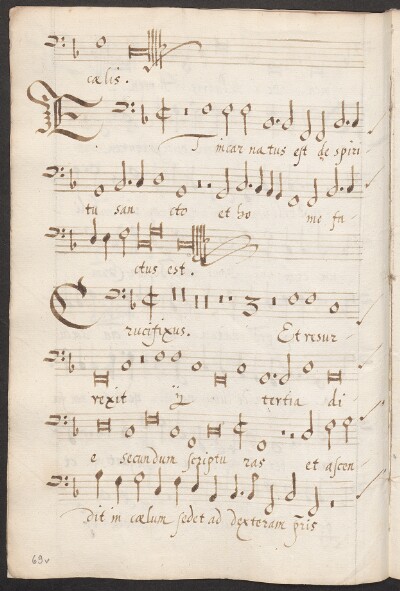 cælis.
Et incarnatus est de spiri
tu sancto et homo fa
ctus est.
Crucifixus. Et resur
rexit ij tertia di
e secundum scriptu ras et ascen
dit in cælum sedet ad dexteram pris
69v